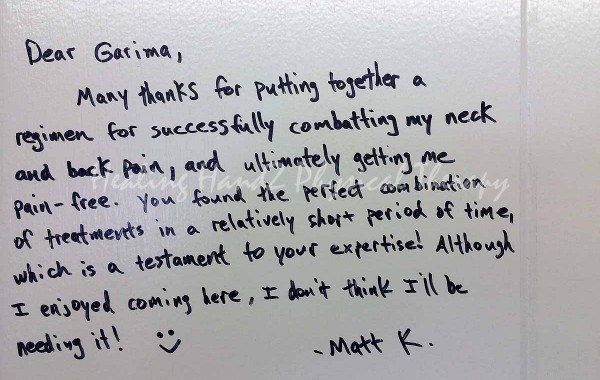 Dear Garima,
Many thanks for putting together a
regimen for successfully combatting my neck
and back pain, and ultimately getting me
Healing Hands Physical Therapy
pain-free. You found the perfect combination
of treatments in a relatively short period of time,
which is a testament to your expertise! Although
I enjoyed coming here, I don't think I'll be
needing it! :)
- Matt K.